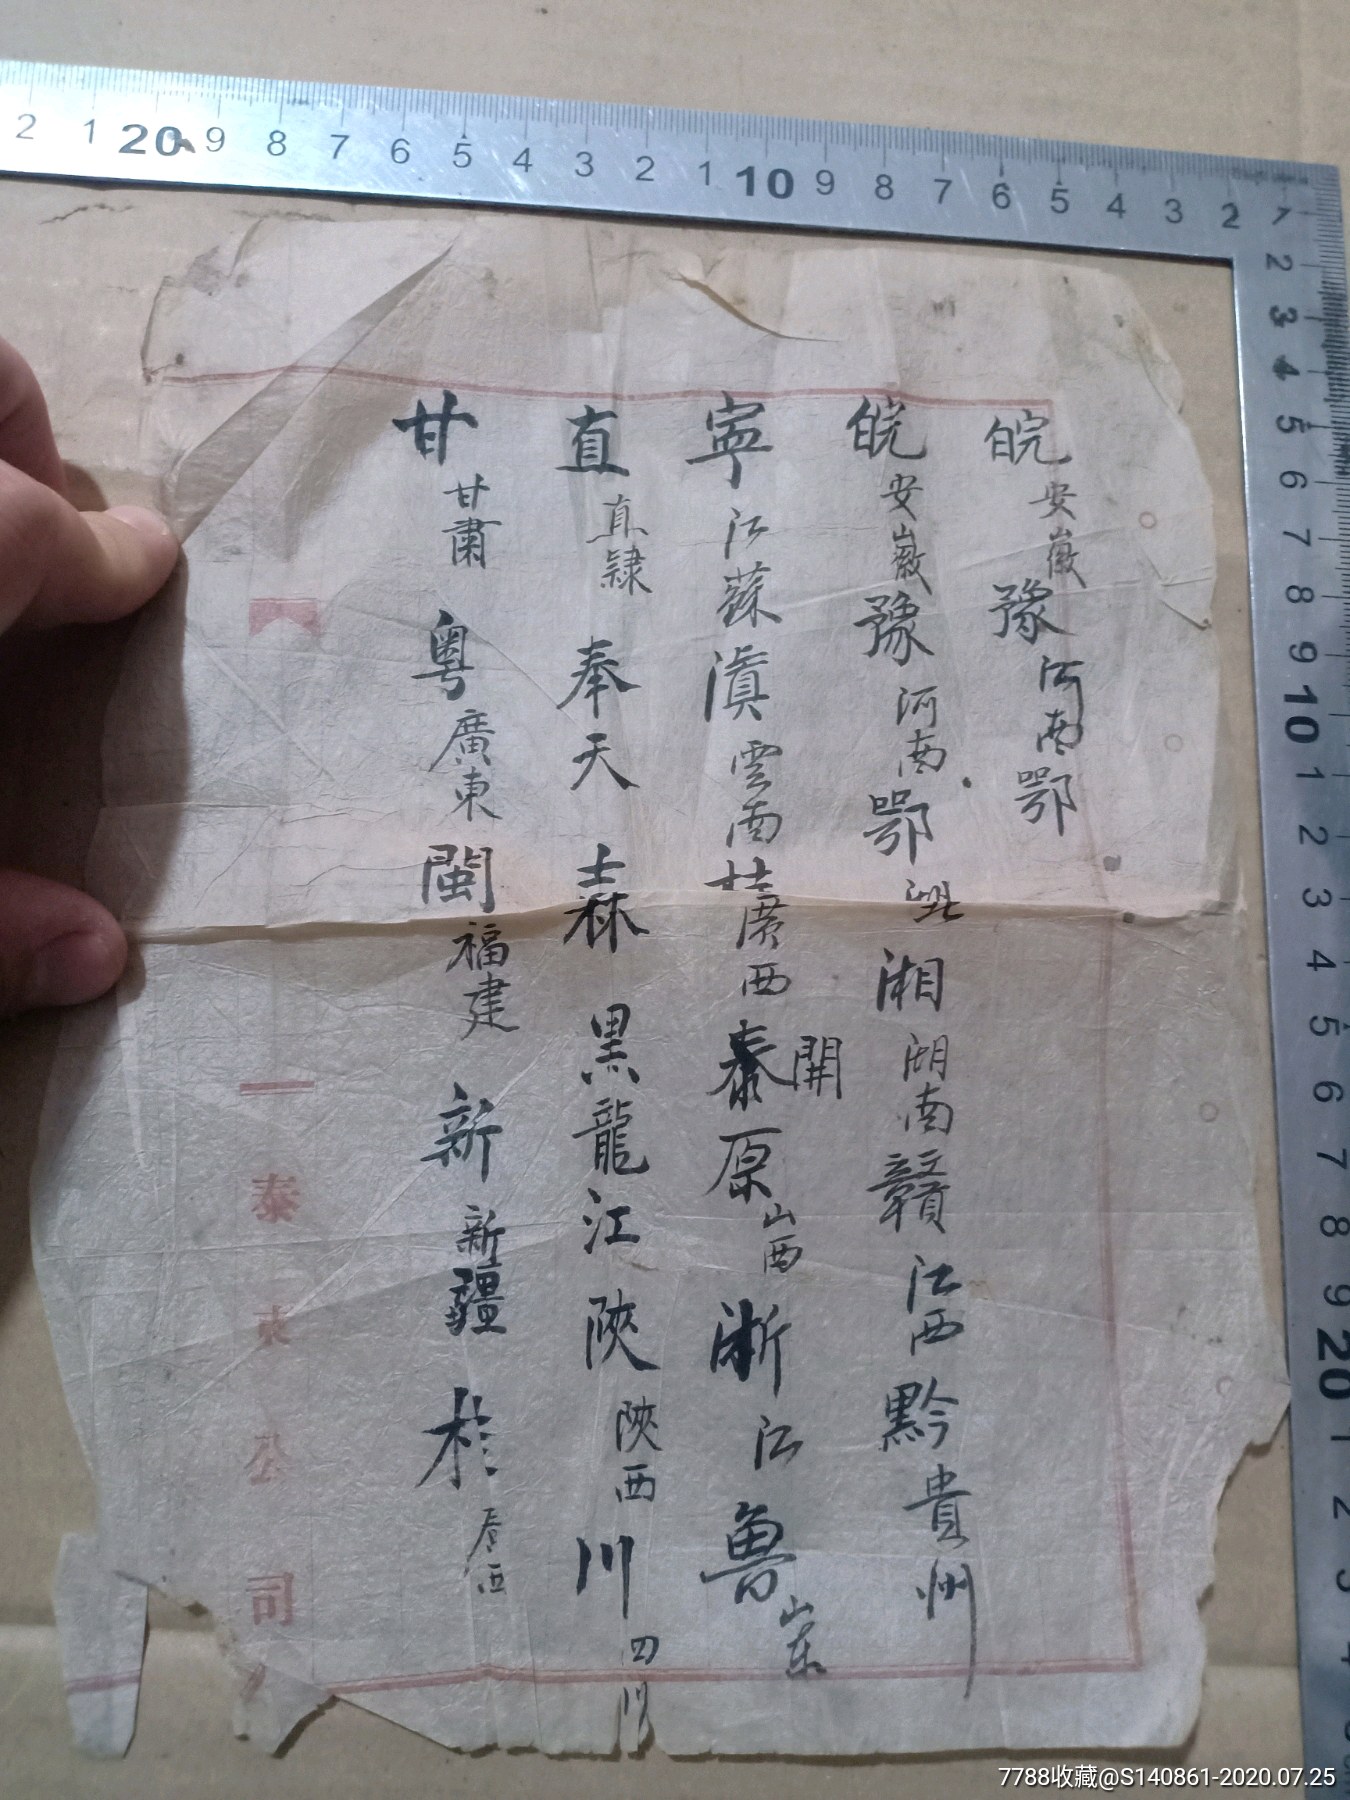 皖安徽豫河南鄂
皖安徽豫河南鄂湘湖南贛江西黔貴州
寧江蘇滇雲南廣西泰開原山西浙江魯山东
直直隸奉天森黑龍江陝陝西川四川
甘甘肅粵廣東閩福建新新疆於
泰東公司
2 1 20 9 8 7 6 5 4 3 2 1 10 9 8 7 6 5 4 3 2 1
2 3 4 5 6 7 8 9 10 1 2 3 4 5 6 7 8 9 20 1 2 3 4
7788收藏@S140861-2020.07.25